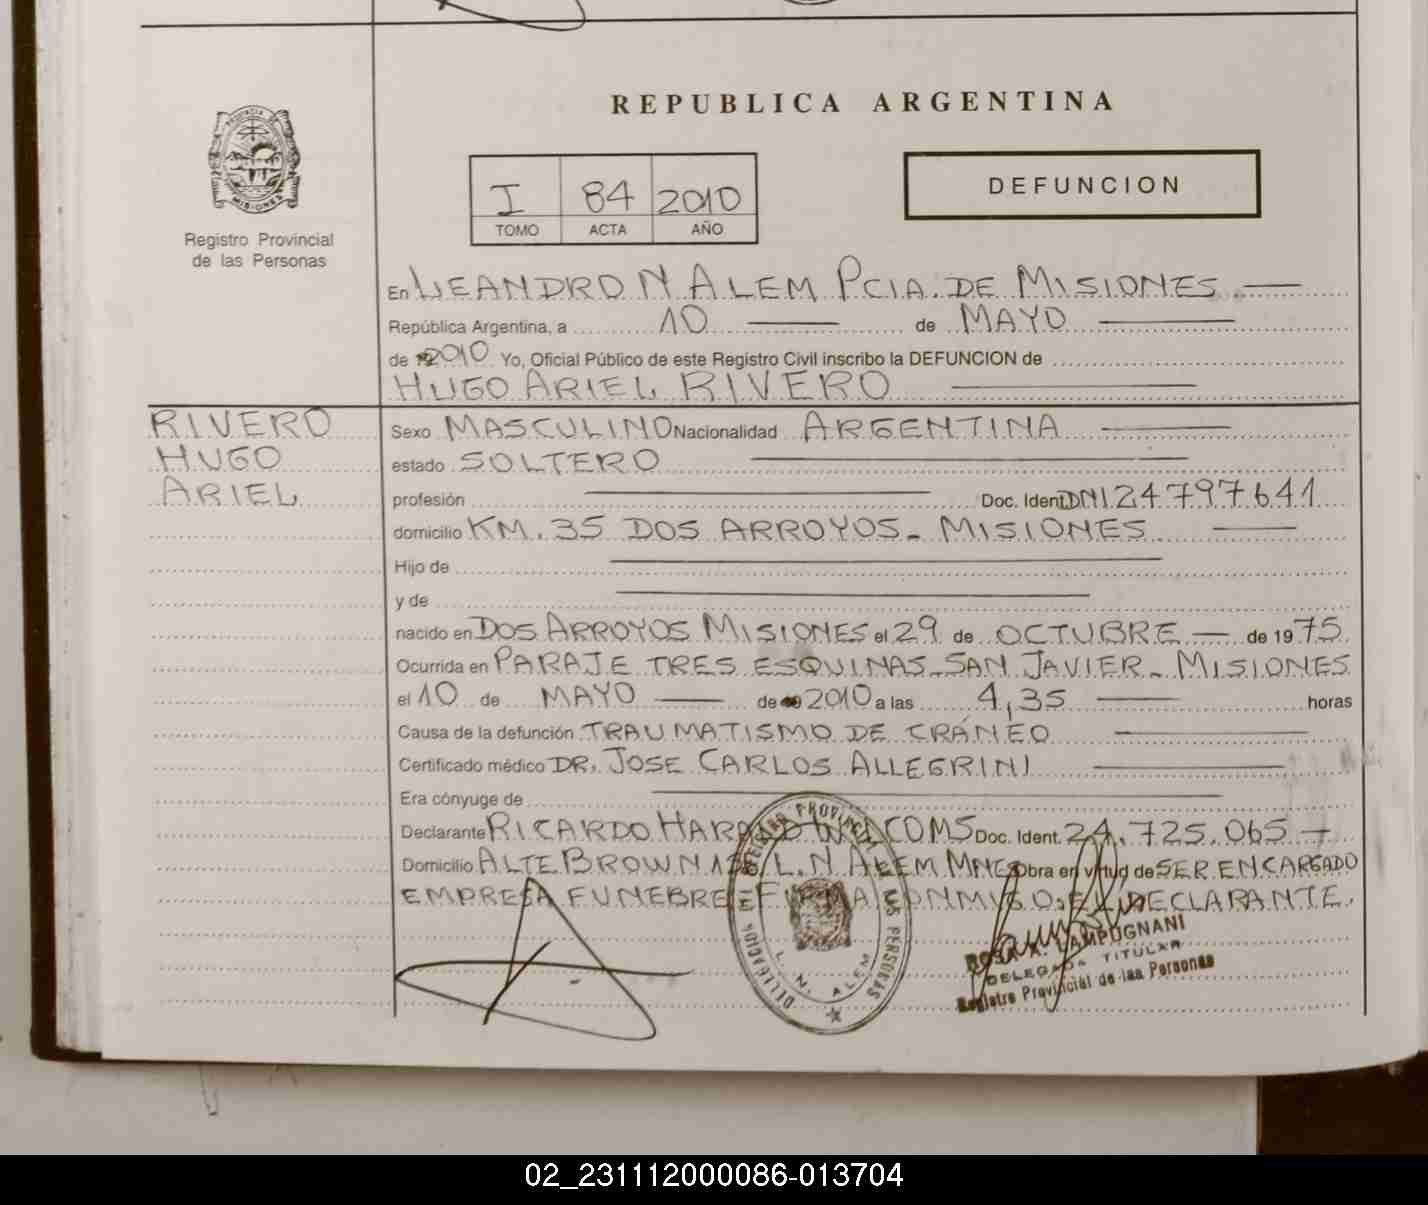 REPUBLICA ARGENTINA
PROVINCIA DE
MISIONES
Registro Provincial
de las Personas
I 84 2010
TOMO ACTA AÑO
DEFUNCION
En LEANDRO N ALEM PCIA. DE MISIONES
República Argentina, a 10 de MAYO
de 2010 Yo, Oficial Público de este Registro Civil inscribo la DEFUNCION de
HUGO ARIEL RIVERO
RIVERO
HUGO
ARIEL
Sexo MASCULINO Nacionalidad ARGENTINA
estado SOLTERO
profesión Doc. Ident. DNI 24797641
domicilio KM. 35 DOS ARROYOS - MISIONES
Hijo de
y de
nacido en DOS ARROYOS MISIONES el 29 de OCTUBRE de 1975
Ocurrida en PARAJE TRES ESQUINAS - SAN JAVIER - MISIONES
el 10 de MAYO de 2010 a las 4,35 horas
Causa de la defunción TRAUMATISMO DE CRÁNEO
Certificado médico DR. JOSE CARLOS ALLEGRINI
Era cónyuge de
Declarante RICARDO HARALD Doc. Ident. 24.725.065
Domicilio ALTE BROWN L.N. ALEM MNES Obra en virtud de SER ENCARGADO
EMPRESA FUNEBRE - FIRMA CONMIGO, EL DECLARANTE.
L. N. ALEM
ROSA A. LAMPUGNANI
DELEGADA TITULAR
Registro Provincial de las Personas
02_231112000086-013704